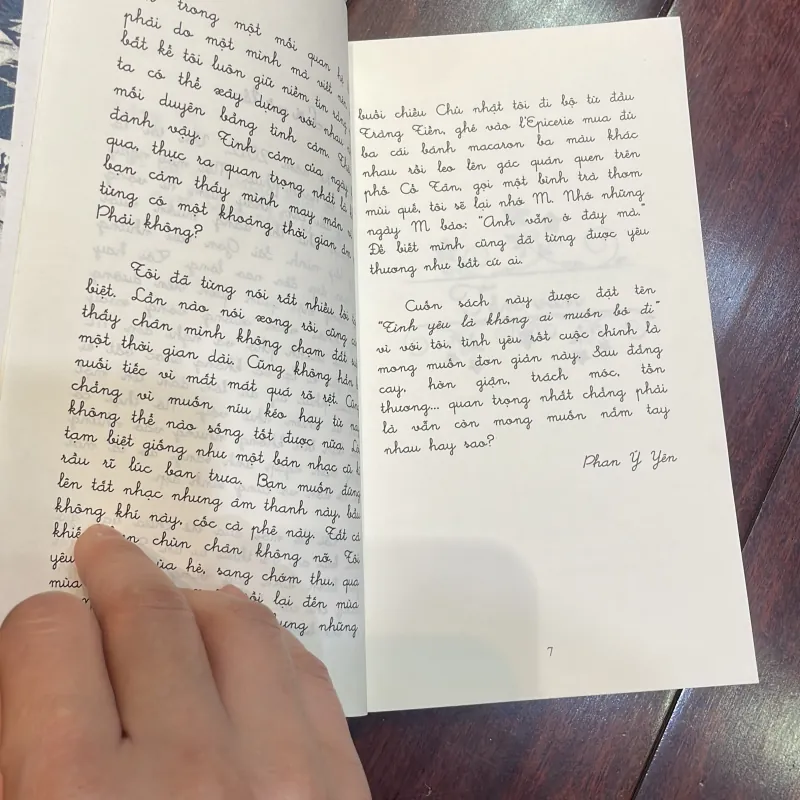 trong một mối quan hệ
phải do một mình mà viết nên
bất kể tôi luôn giữ niềm tin rằng
ta có thể xây dựng với nhau
mối duyên bằng tình cảm.
đành vậy. Tình cảm của ngày
qua, thực ra quan trọng nhất là
bạn cảm thấy mình may mắn
từng có một khoảng thời gian
Phải không?
Tôi đã từng nói rất nhiều lời
biệt. Lần nào nói xong rồi cũng
thấy chân mình không chạm đất
một thời gian dài. Cũng không hẳn
nuối tiếc vì mất mát quá rõ rệt. Cũng
chẳng vì muốn níu kéo hay từ nay
không thể nào sống tốt được nữa. Lời
tạm biệt giống như một bản nhạc cũ
rầu rĩ lúc ban trưa. Bạn muốn đứng
lên tắt nhạc nhưng âm thanh này, bầu
không khí này, cốc cà phê này. Tất cả
chùn chân không nỡ. Tôi
yêu hè, sang chớm thu, qua
mùa lại đến mùa
những
buổi chiều Chủ nhật tôi đi bộ từ đầu
Tràng Tiền, ghé vào l'Epicerie mua đủ
ba cái bánh macaron ba màu khác
nhau rồi leo lên gác quán quen trên
phố Cổ Tân, gọi một bình trà thơm
mùi quế, tôi sẽ lại nhớ M. Nhớ những
ngày M bảo: "Anh vẫn ở đây mà."
Để biết mình cũng đã từng được yêu
thương như bất cứ ai.
Cuốn sách này được đặt tên
"Tình yêu là không ai muốn bỏ đi"
vì với tôi, tình yêu rốt cuộc chính là
mong muốn đơn giản này. Sau đắng
cay, hờn giận, trách móc, tổn
thương... quan trọng nhất chẳng phải
là vẫn còn mong muốn nắm tay
nhau hay sao?
Phan Ý Yên
7